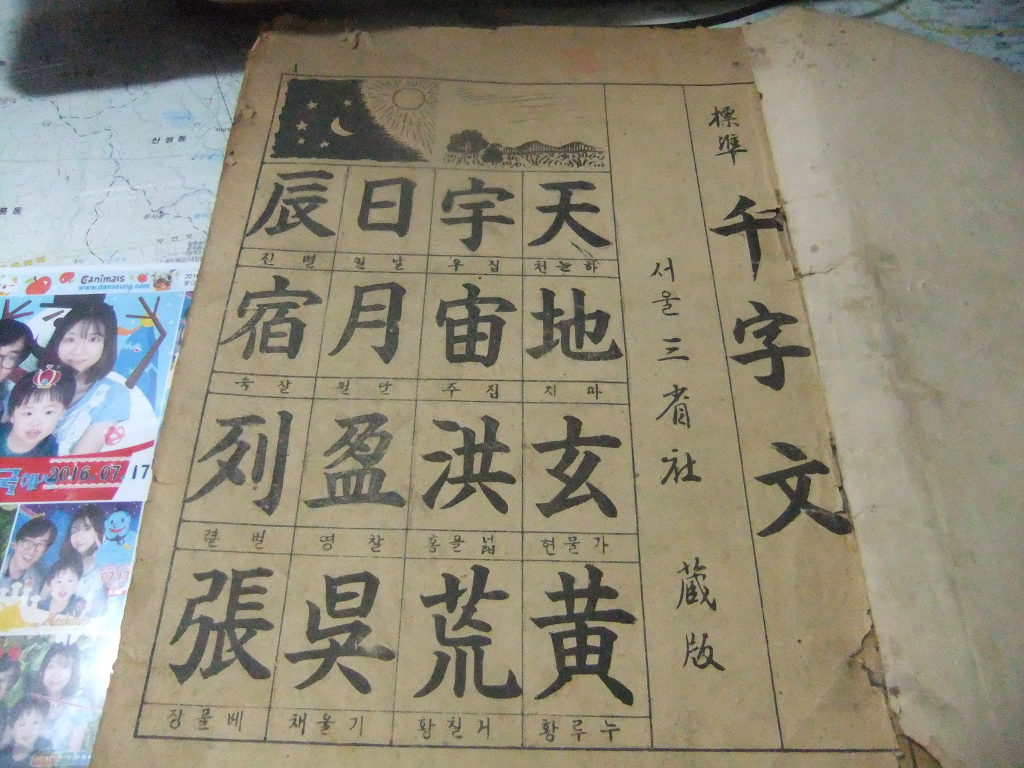 標準 千字文
서울 三省社 蔵版
1
天
하늘천
地
따지
玄
가물현
黄
누루황
宇
집우
宙
집주
洪
넓을홍
荒
거칠황
日
날일
月
달월
盈
찰영
昃
기울책
辰
별진
宿
잘숙
列
벌렬
張
베풀장
Canimals
www.daesoung.com
2016.07 17